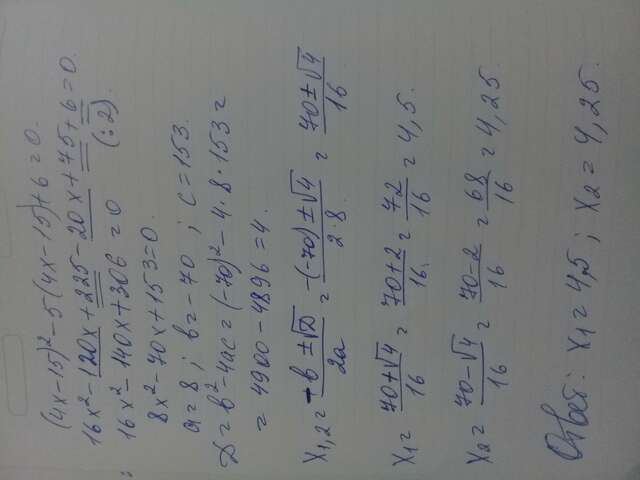 (4x-15)²-5(4x-15)+6=0.
16x²-120x+225-20x+75+6=0.
16x²-140x+306=0 (:2).
8x²-70x+153=0.
a=8; b=-70; c=153.
D=b²-4ac=(-70)²-4·8·153=
=4900-4896=4.
x₁,₂= (-b±√D)/2a = (-(-70)±√4)/2·8 = (70±√4)/16
x₁= (70+√4)/16 = (70+2)/16 = 72/16 = 4,5.
x₂= (70-√4)/16 = (70-2)/16 = 68/16 = 4,25
Ответ: x₁=4,5; x₂=4,25.